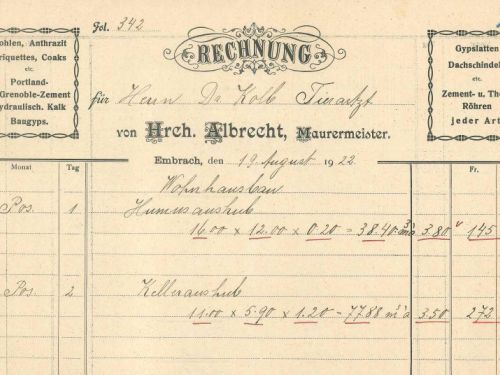 Fol. 342
ohlen, Anthrazit
riquettes, Coaks
etc.
Portland-
Grenoble-Zement
ydraulisch. Kalk
Baugyps.
RECHNUNG
Gypslatten
Dachschindel
etc.
Zement- u. Th
Röhren
jeder Art
für Herrn Dr Kolb Tierarzt
von Hrch. Albrecht, Maurermeister.
Embrach, den 19. August 1922
Monat Tag Fr.
Wohnhausbau
Pos. 1 Humusaushub
16.00 x 12.00 x 0.20 = 38.40 m³ à 3.80 145
Pos. 2 Kelleraushub
11.00 x 5.90 x 1.20 = 77.88 m³ à 3.50 272